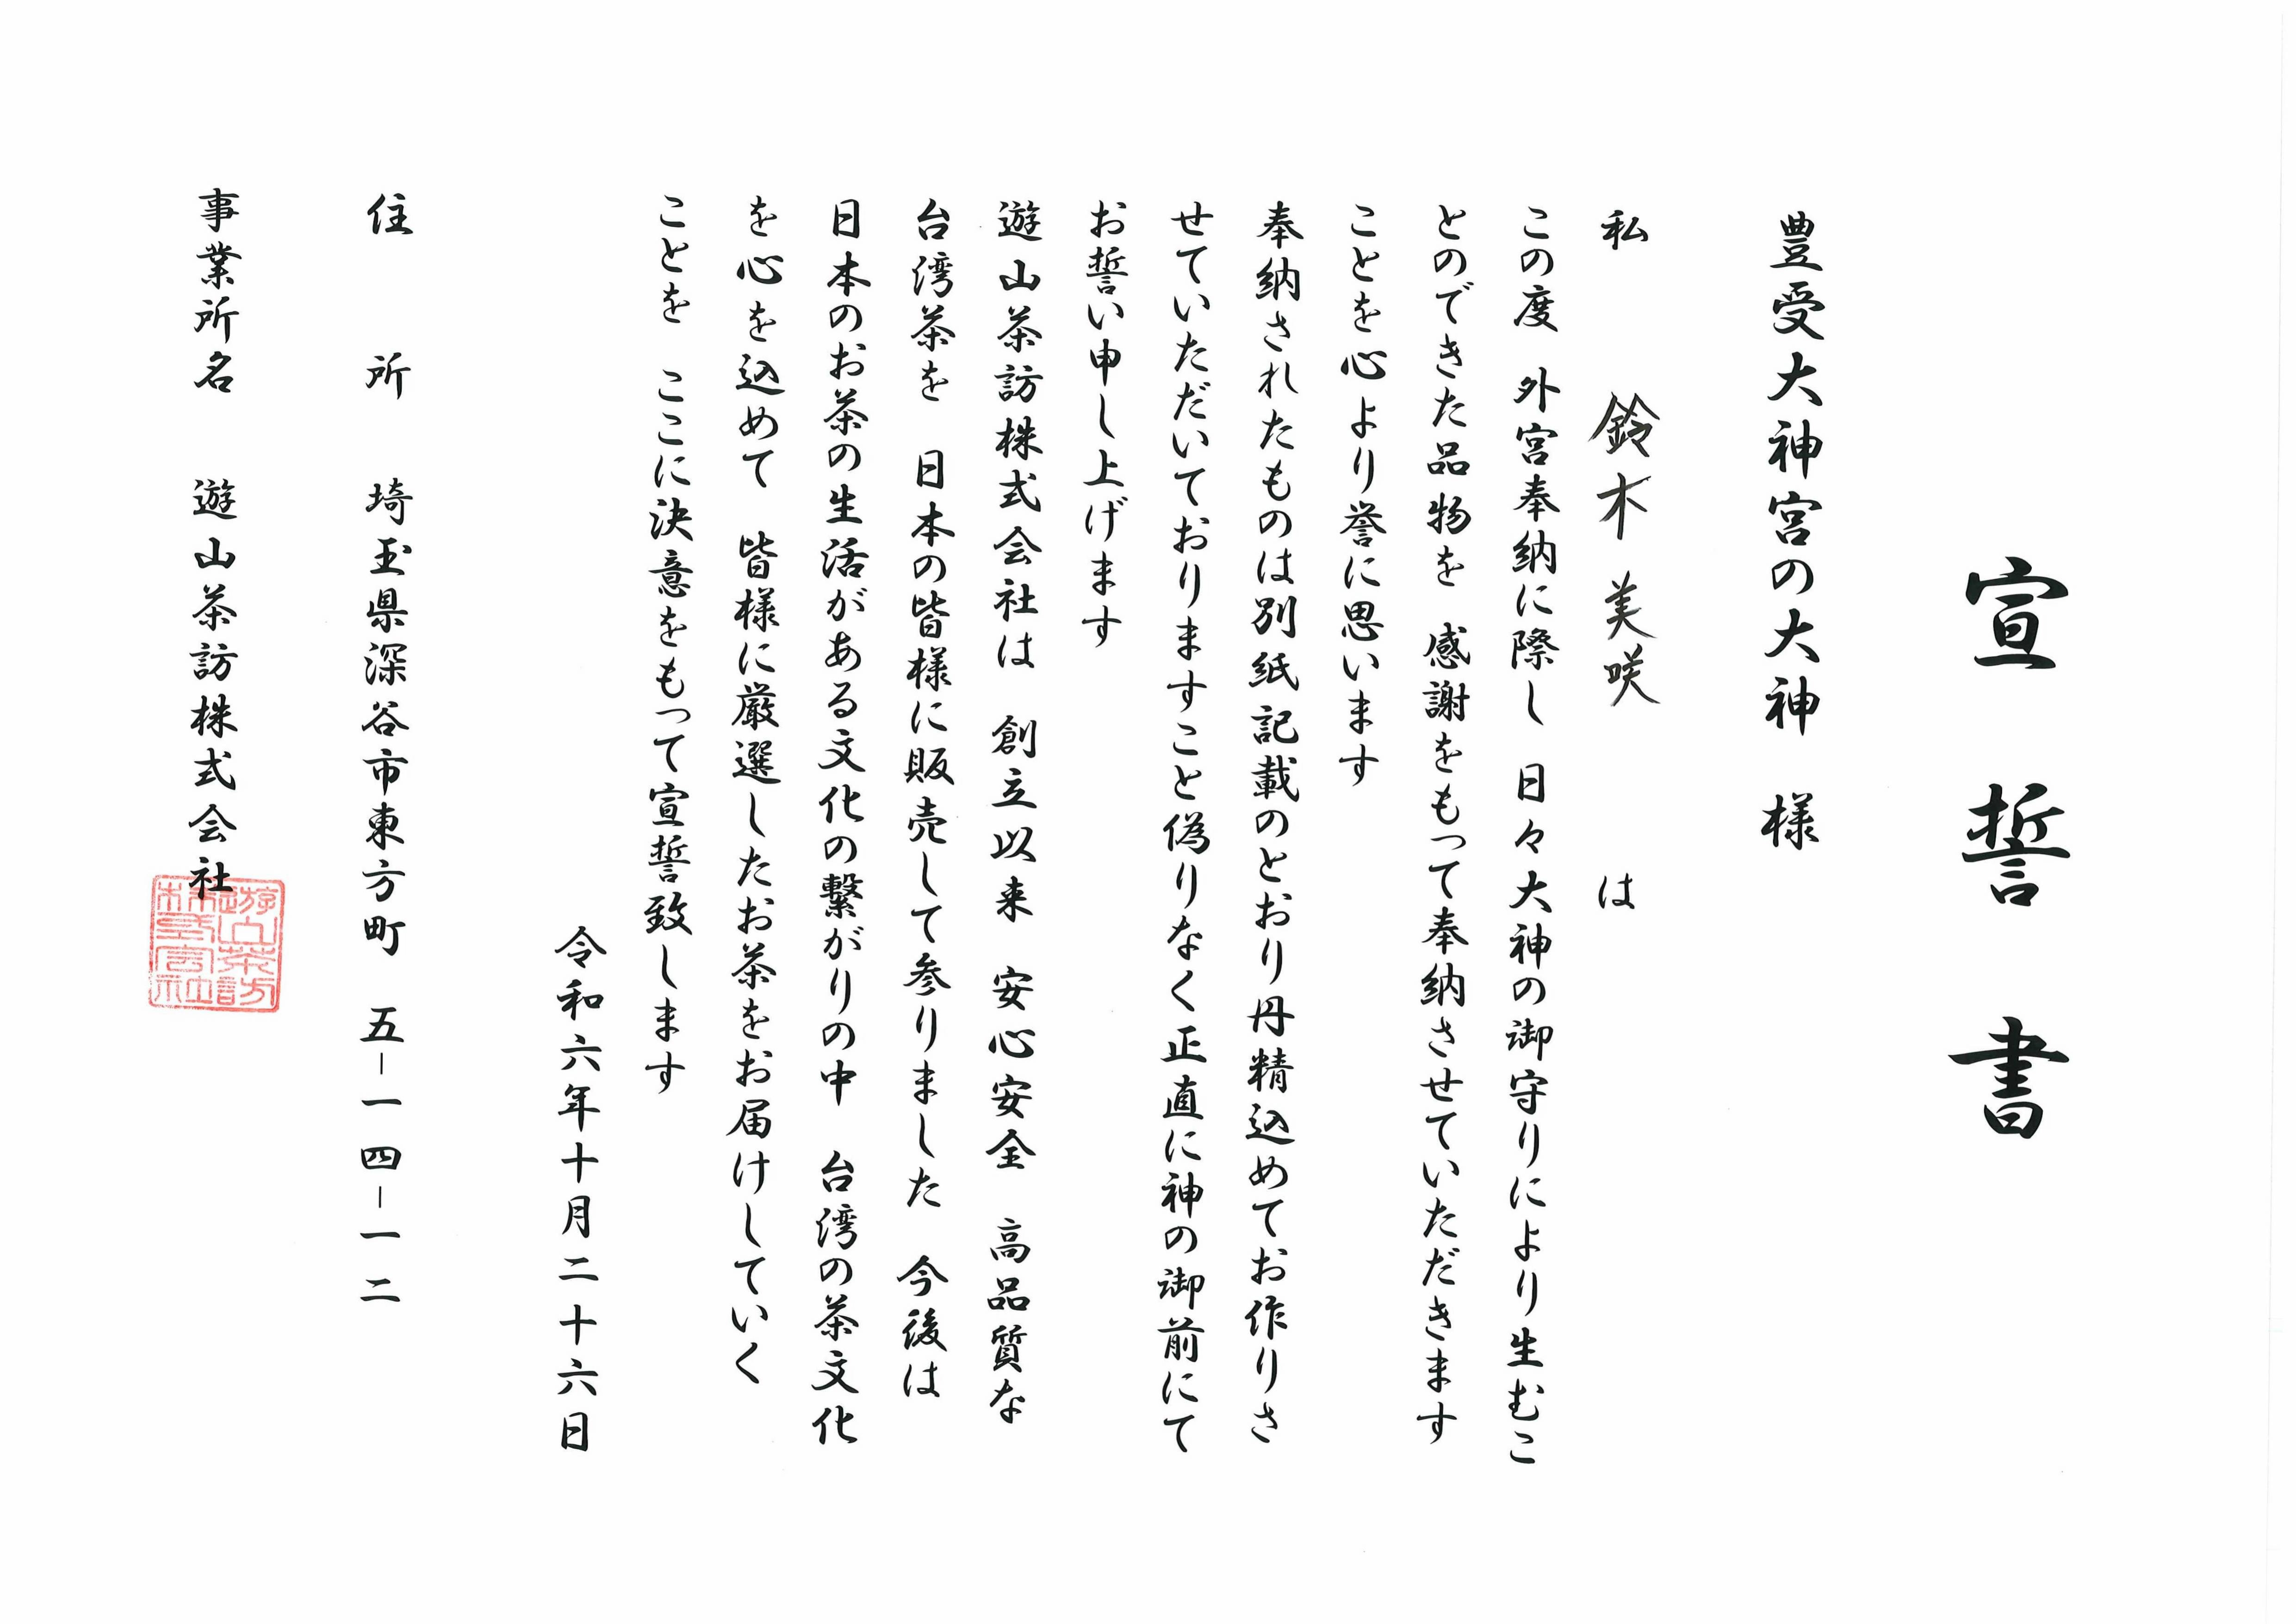 宣誓書
豊受大神宮の大神 様
私 鈴木 美咲 は
この度 外宮奉納に際し 日々大神の御守りにより生むこ
とのできた品物を 感謝をもって奉納させていただきます
ことを心より誉に思います
奉納されたものは別紙記載のとおり丹精込めてお作りさ
せていただいておりますこと偽りなく正直に神の御前にて
お誓い申し上げます
遊山茶訪株式会社は 創立以来 安心安全 高品質な
台湾茶を 日本の皆様に販売して参りました 今後は
日本のお茶の生活がある文化の繋がりの中 台湾の茶文化
を心を込めて 皆様に厳選したお茶をお届けしていく
ことを ここに決意をもって宣誓致します
令和六年十月二十六日
住所 埼玉県深谷市東方町 五-一四-一二
事業所名 遊山茶訪株式会社
遊山茶訪
株式会社